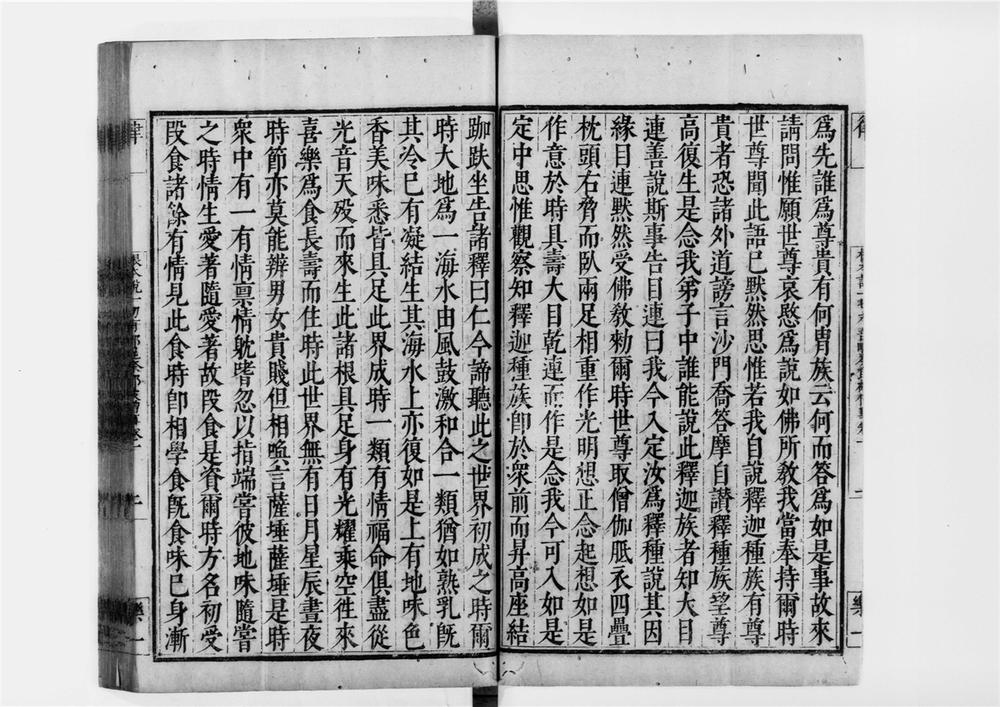 為先誰為尊貴有何胄族云何而答為如是事故來
請問惟願世尊哀愍為說如佛所教我當奉持爾時
世尊聞此語已默然思惟若我自說釋迦種族有尊
貴者恐諸外道謗言沙門喬答摩自讚釋種族望尊
高復生是念我弟子中誰能說此釋迦族者知大目
連善說斯事告目連曰我今入定汝為釋種說其因
緣目連默然受佛教勅爾時世尊取僧伽胝衣四疊
枕頭右脅而臥兩足相重作光明想正念起想如是
作意於時具壽大目乾連而作是念我今可入如是
定中思惟觀察知釋迦種族即於衆前而昇高座結
跏趺坐告諸釋曰仁今諦聽此之世界初成之時爾
時大地為一海水由風鼓激和合一類猶如熟乳既
其冷已有凝結生其海水上亦復如是上有地味色
香美味悉皆具足此界成時一類有情福命俱盡從
光音天歿而來生此諸根具足身有光耀乘空徃來
喜樂為食長壽而住時此世界無有日月星辰晝夜
時節亦莫能辨男女貴賤但相喚言薩埵薩埵是時
衆中有一有情稟情躭嗜忽以指端嘗彼地味隨嘗
之時情生愛著隨愛著故段食是資爾時方名初受
段食諸餘有情見此食時即相學食既食味已身漸
律
樂一